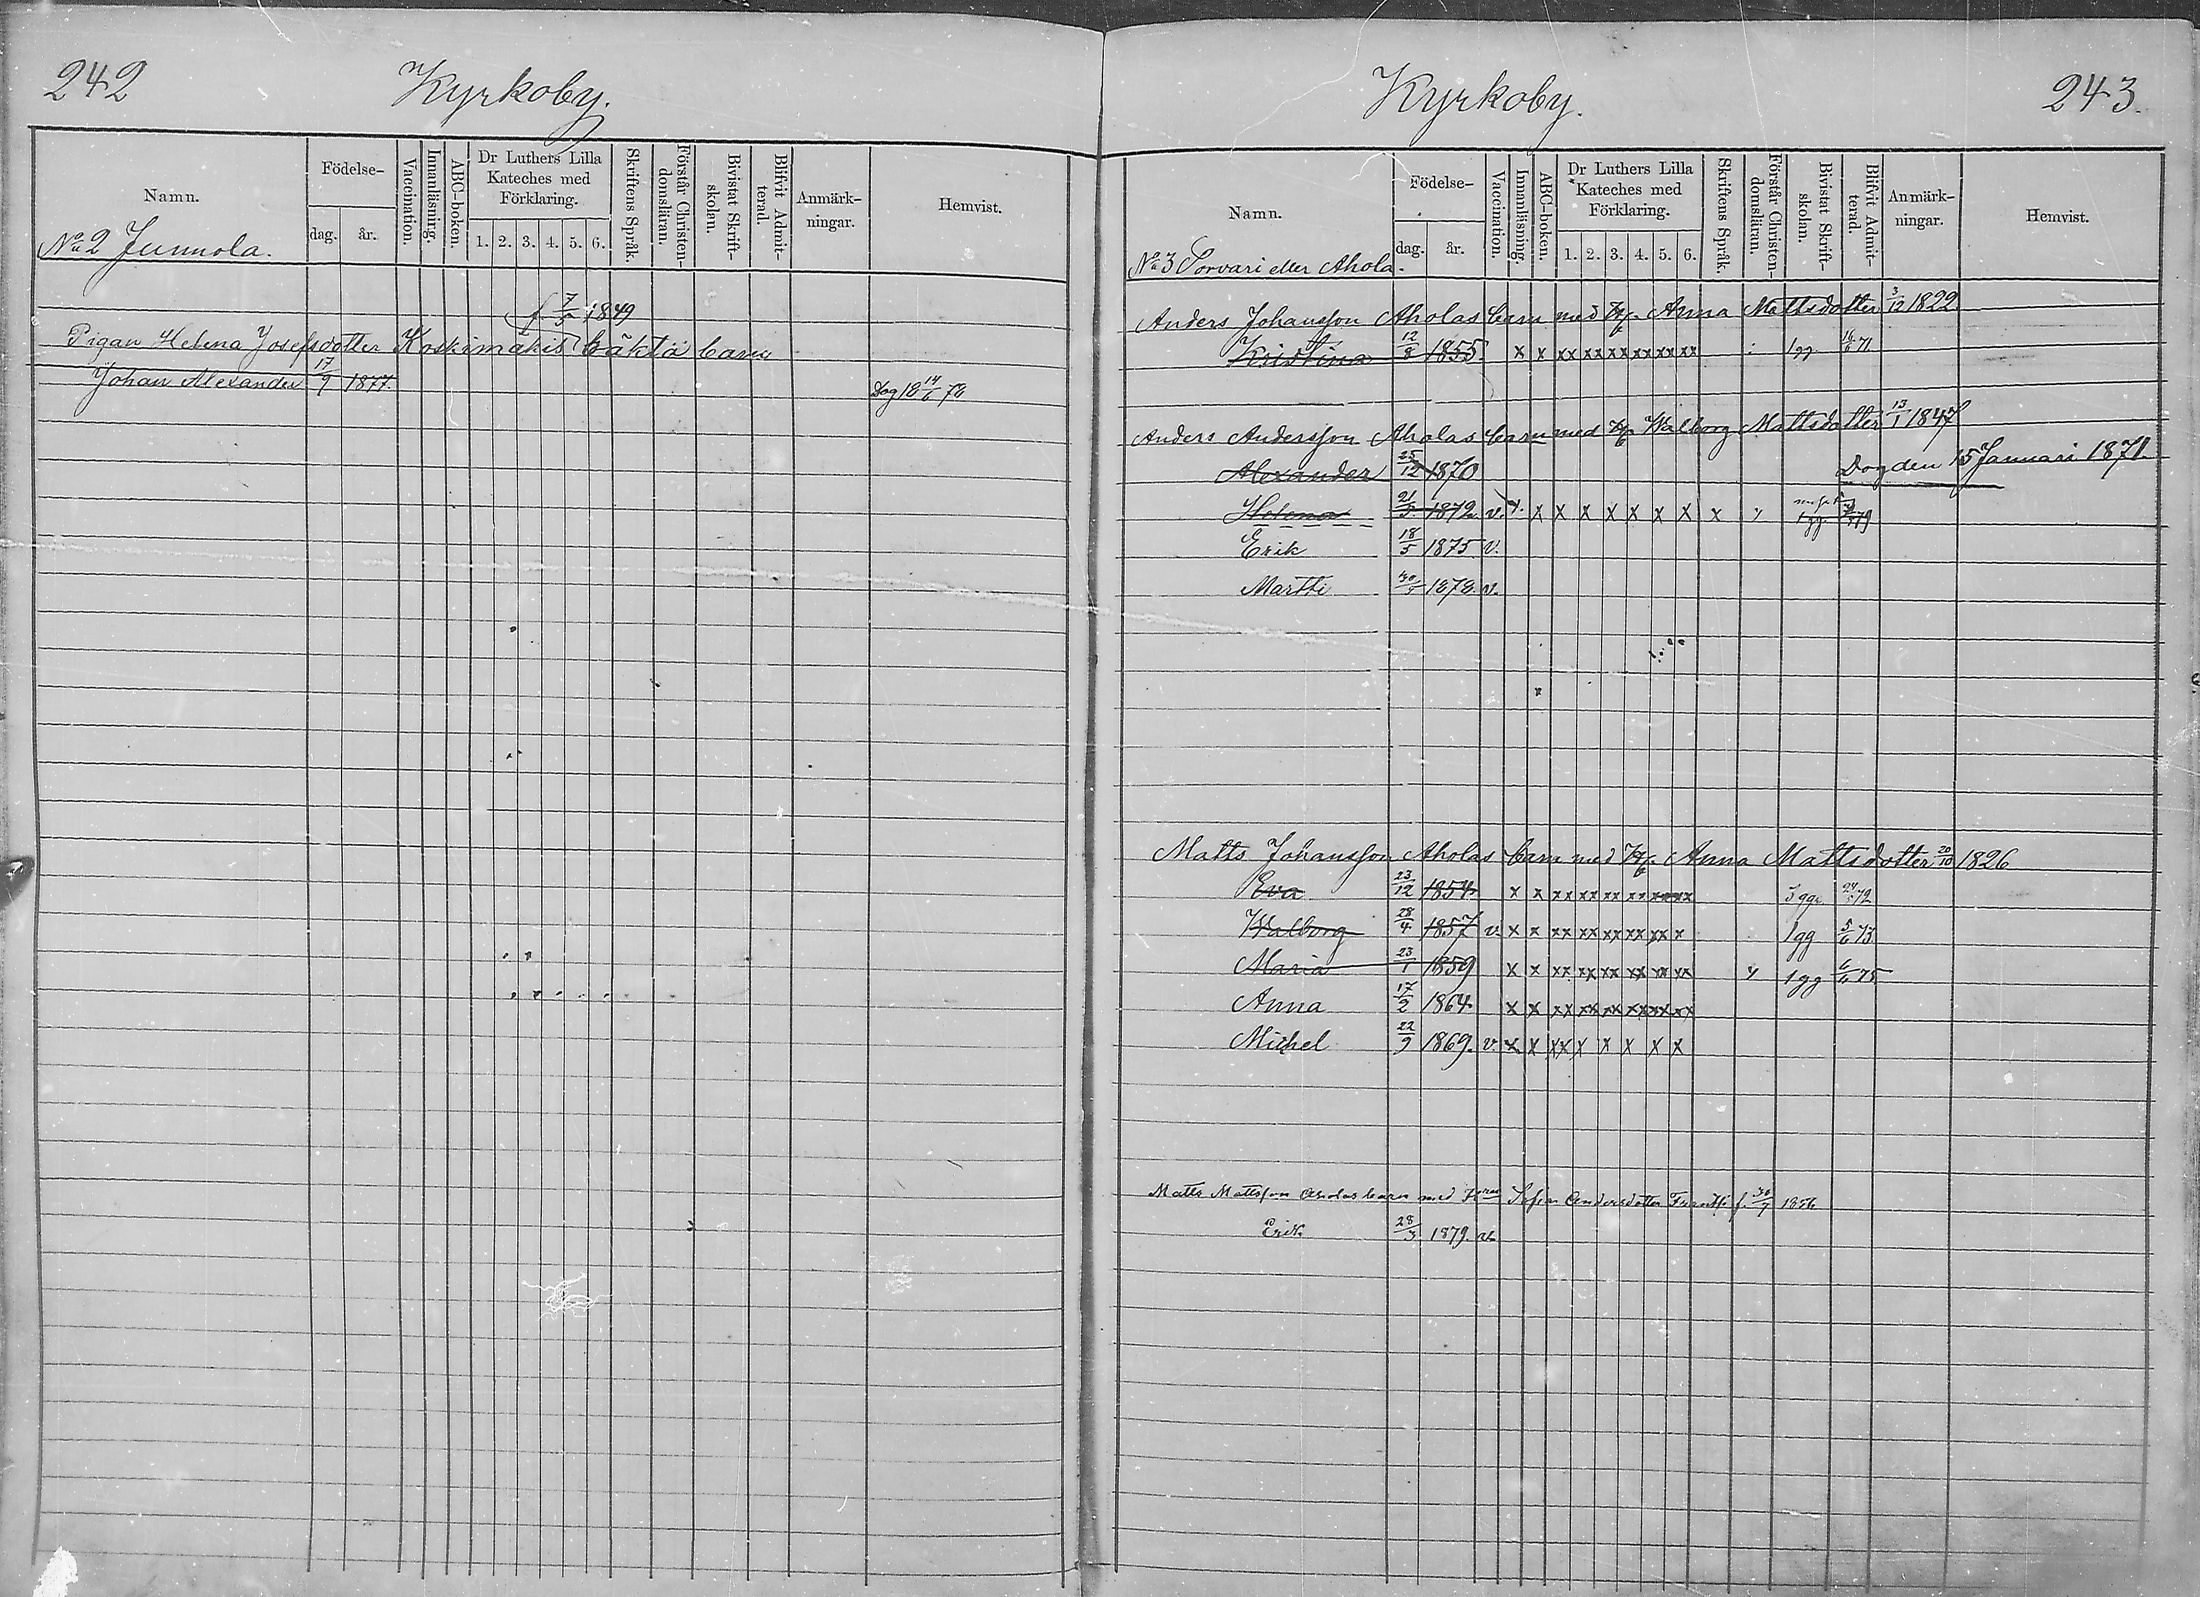 242 Kyrkoby.
Namn. Födelse- dag. år. Vaccination. Innanläsning. ABC-boken. Dr Luthers Lilla Kateches med Förklaring. 1. 2. 3. 4. 5. 6. Skriftens Språk. Förstår Christendomsläran. Bivistat Skriftskolan. Blifvit Admitterad. Anmärkningar. Hemvist.
No 2 Junnola.
f. 7/5 1849
Pigan Helena Josefsdotter Koskimäkis oäkta barn
Johan Alexander 17/9 1877. Dog 18 14/6 78
Kyrkoby. 243.
Namn. Födelse- dag. år. Vaccination. Innanläsning. ABC-boken. Dr Luthers Lilla Kateches med Förklaring. 1. 2. 3. 4. 5. 6. Skriftens Språk. Förstår Christendomsläran. Bivistat Skriftskolan. Blifvit Admitterad. Anmärkningar. Hemvist.
No 3 Porvari eller Ahola.
Anders Johansson Aholas barn med H. Anna Mattsdotter 3/12 1822
Kristina 12/8 1855 x x xx xx xx xx xx xx 1 gg 16/6 71
Anders Andersson Aholas barn med H. Walborg Mattsdotter 13/1 1847
Alexander 25/12 1870 Dog den 15 Januari 1871.
Helena 21/5 1872 v. x x x x x x x x 1 gg. 79
Erik 18/5 1875 v.
Martti 30/5 1878. v.
Matts Johansson Aholas barn med H. Anna Mattsdotter 20/10 1826
Eva 23/12 1854. x x xx xx xx xx xx xx 3 gge 72
Walborg 28/4 1857 v. x x xx xx xx xx xx x 1 gg 5/6 73
Maria 23/1 1859 x x xx xx xx xx xx xx 1 gg 6/6 75
Anna 17/2 1864 x x xx xx xx xx xx xx
Michel 22/9 1869. v x x xx x x x x x
Matts Mattsson Aholas barn med Sofia Andersdotter f. 30/7 1856
Erik 28/3 1879. v.